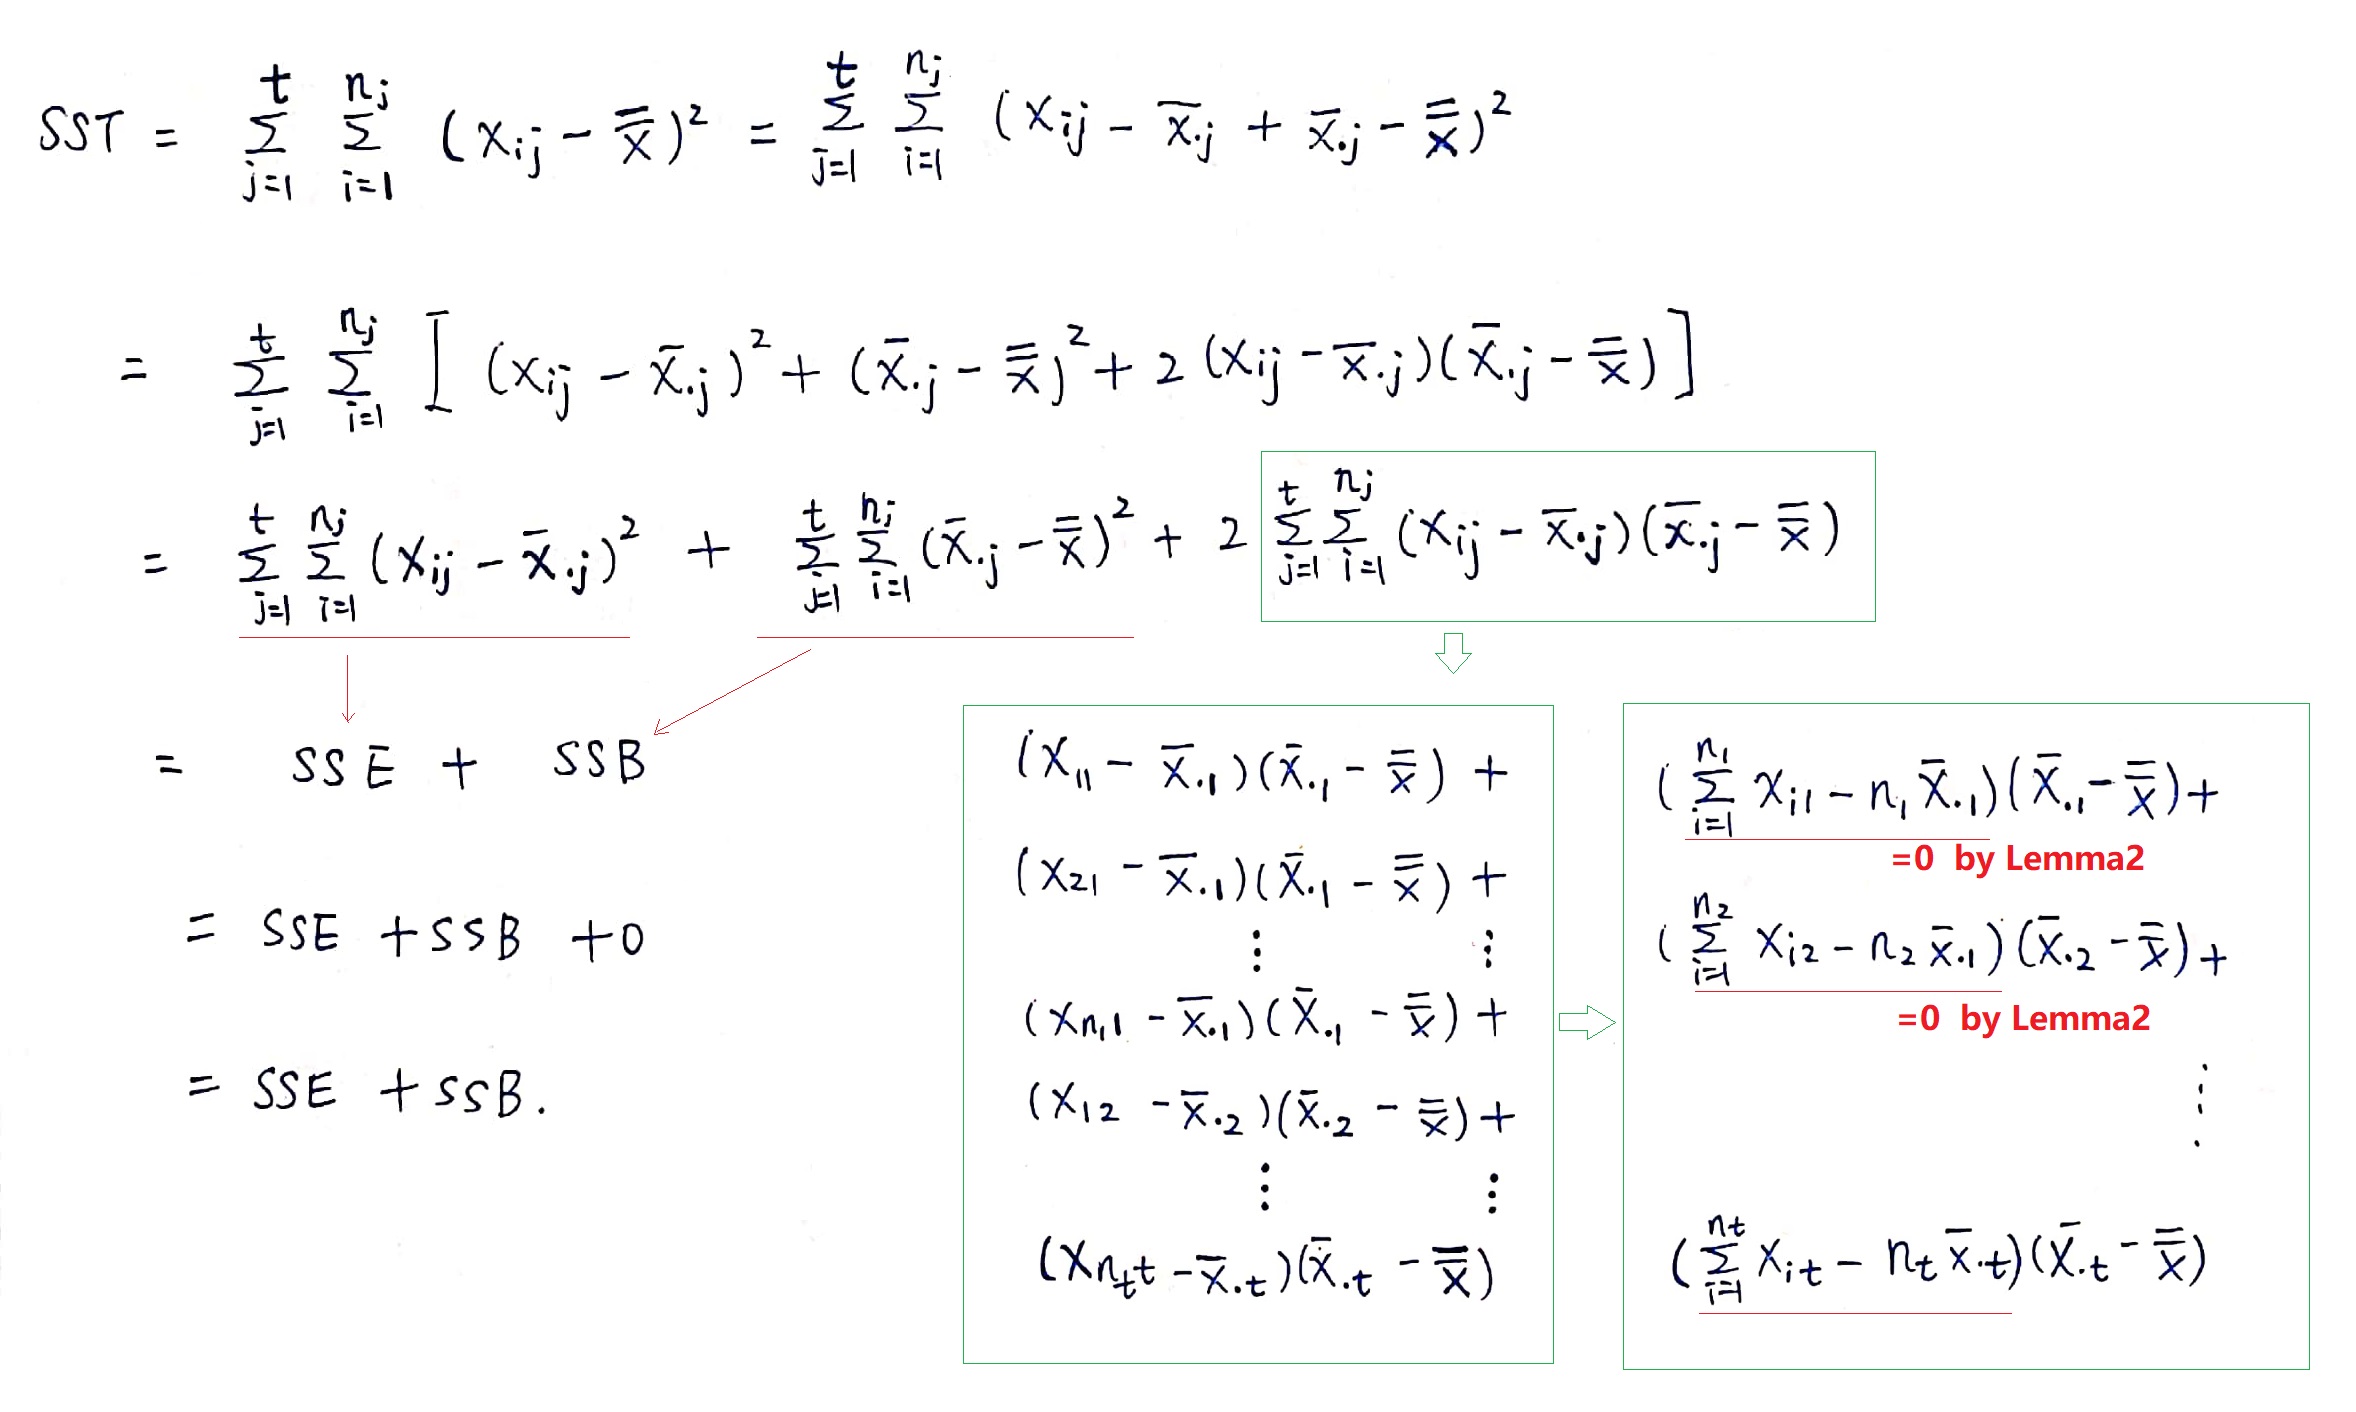 SST = Σ_{j=1}^{t} Σ_{i=1}^{n_j} (x_{ij} − x̿)² = Σ_{j=1}^{t} Σ_{i=1}^{n_j} (x_{ij} − x̄_{·j} + x̄_{·j} − x̿)²
= Σ_{j=1}^{t} Σ_{i=1}^{n_j} [ (x_{ij} − x̄_{·j})² + (x̄_{·j} − x̿)² + 2 (x_{ij} − x̄_{·j})(x̄_{·j} − x̿) ]
= Σ_{j=1}^{t} Σ_{i=1}^{n_j} (x_{ij} − x̄_{·j})² + Σ_{j=1}^{t} Σ_{i=1}^{n_j} (x̄_{·j} − x̿)² + 2 Σ_{j=1}^{t} Σ_{i=1}^{n_j} (x_{ij} − x̄_{·j})(x̄_{·j} − x̿)
= SSE + SSB
= SSE + SSB + 0
= SSE + SSB.
(x_{11} − x̄_{·1})(x̄_{·1} − x̿) +
(x_{21} − x̄_{·1})(x̄_{·1} − x̿) +
⋮ ⋮
(x_{n_1 1} − x̄_{·1})(x̄_{·1} − x̿) +
(x_{12} − x̄_{·2})(x̄_{·2} − x̿) +
⋮ ⋮
(x_{n_t t} − x̄_{·t})(x̄_{·t} − x̿)
(Σ_{i=1}^{n_1} x_{i1} − n_1 x̄_{·1})(x̄_{·1} − x̿) +
=0 by Lemma2
(Σ_{i=1}^{n_2} x_{i2} − n_2 x̄_{·1})(x̄_{·2} − x̿) +
=0 by Lemma2
⋮
(Σ_{i=1}^{n_t} x_{it} − n_t x̄_{·t})(x̄_{·t} − x̿)